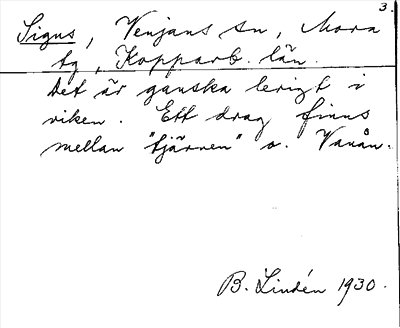 3.
Signs, Venjans sn, Mora
tg, Kopparb. län.
Det är ganska lerigt i
viken. Ett drag finns
mellan "tjärnen" o. Vanån.
B. Lindén 1930.